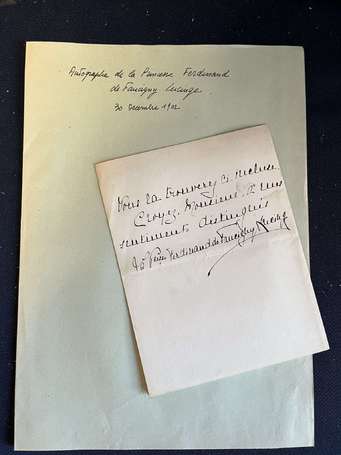 Autographe de la Princesse Ferdinand
de Faucigny Lucinge
30 Décembre 1902
Vous la trouverez ci incluse
Croyez, Monsieur, à mes
sentiments distingués
Psse Ferdinand de Faucigny Lucinge